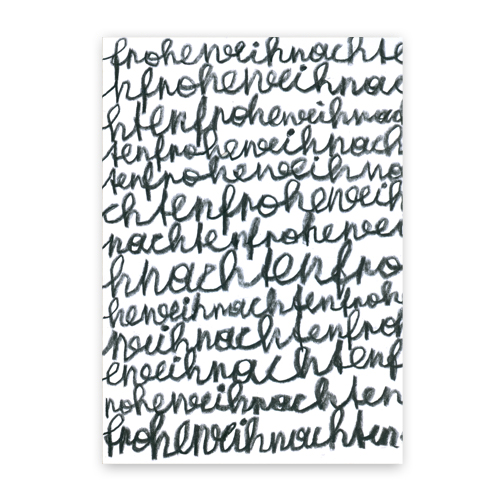 froheweihnachte
hfroheweihnac
htenfroheweihnac
tenfroheweihnach
tenfroheweihna
chtenfroheweih
nachtenfrohewei
hnachtenfro
heweihnachtenfroh
weihnachtenfro
eweihnachtenf
roheweihnachten
froheweihnachten